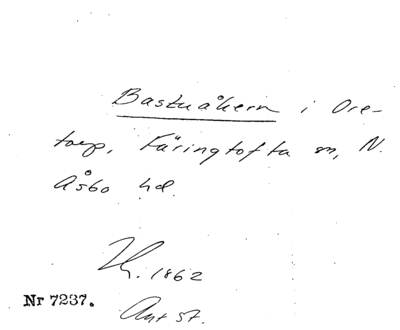 Bastuåkern i Ore-
torp, Färingtofta sn, N.
Åsbo hd.
1862
Nr 7237.
Ant 57.